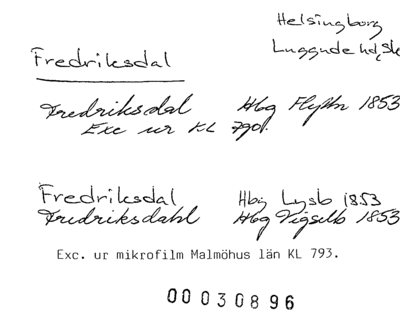 Helsingborg
Luggude hd, Sk
Fredriksdal
Fredriksdal Hbg Flyttn 1853
Exc ur KL 790.
Fredriksdal Hbg Lysb 1853
Fredriksdahl Hbg Vigselb 1853
Exc. ur mikrofilm Malmöhus län KL 793.
00030896